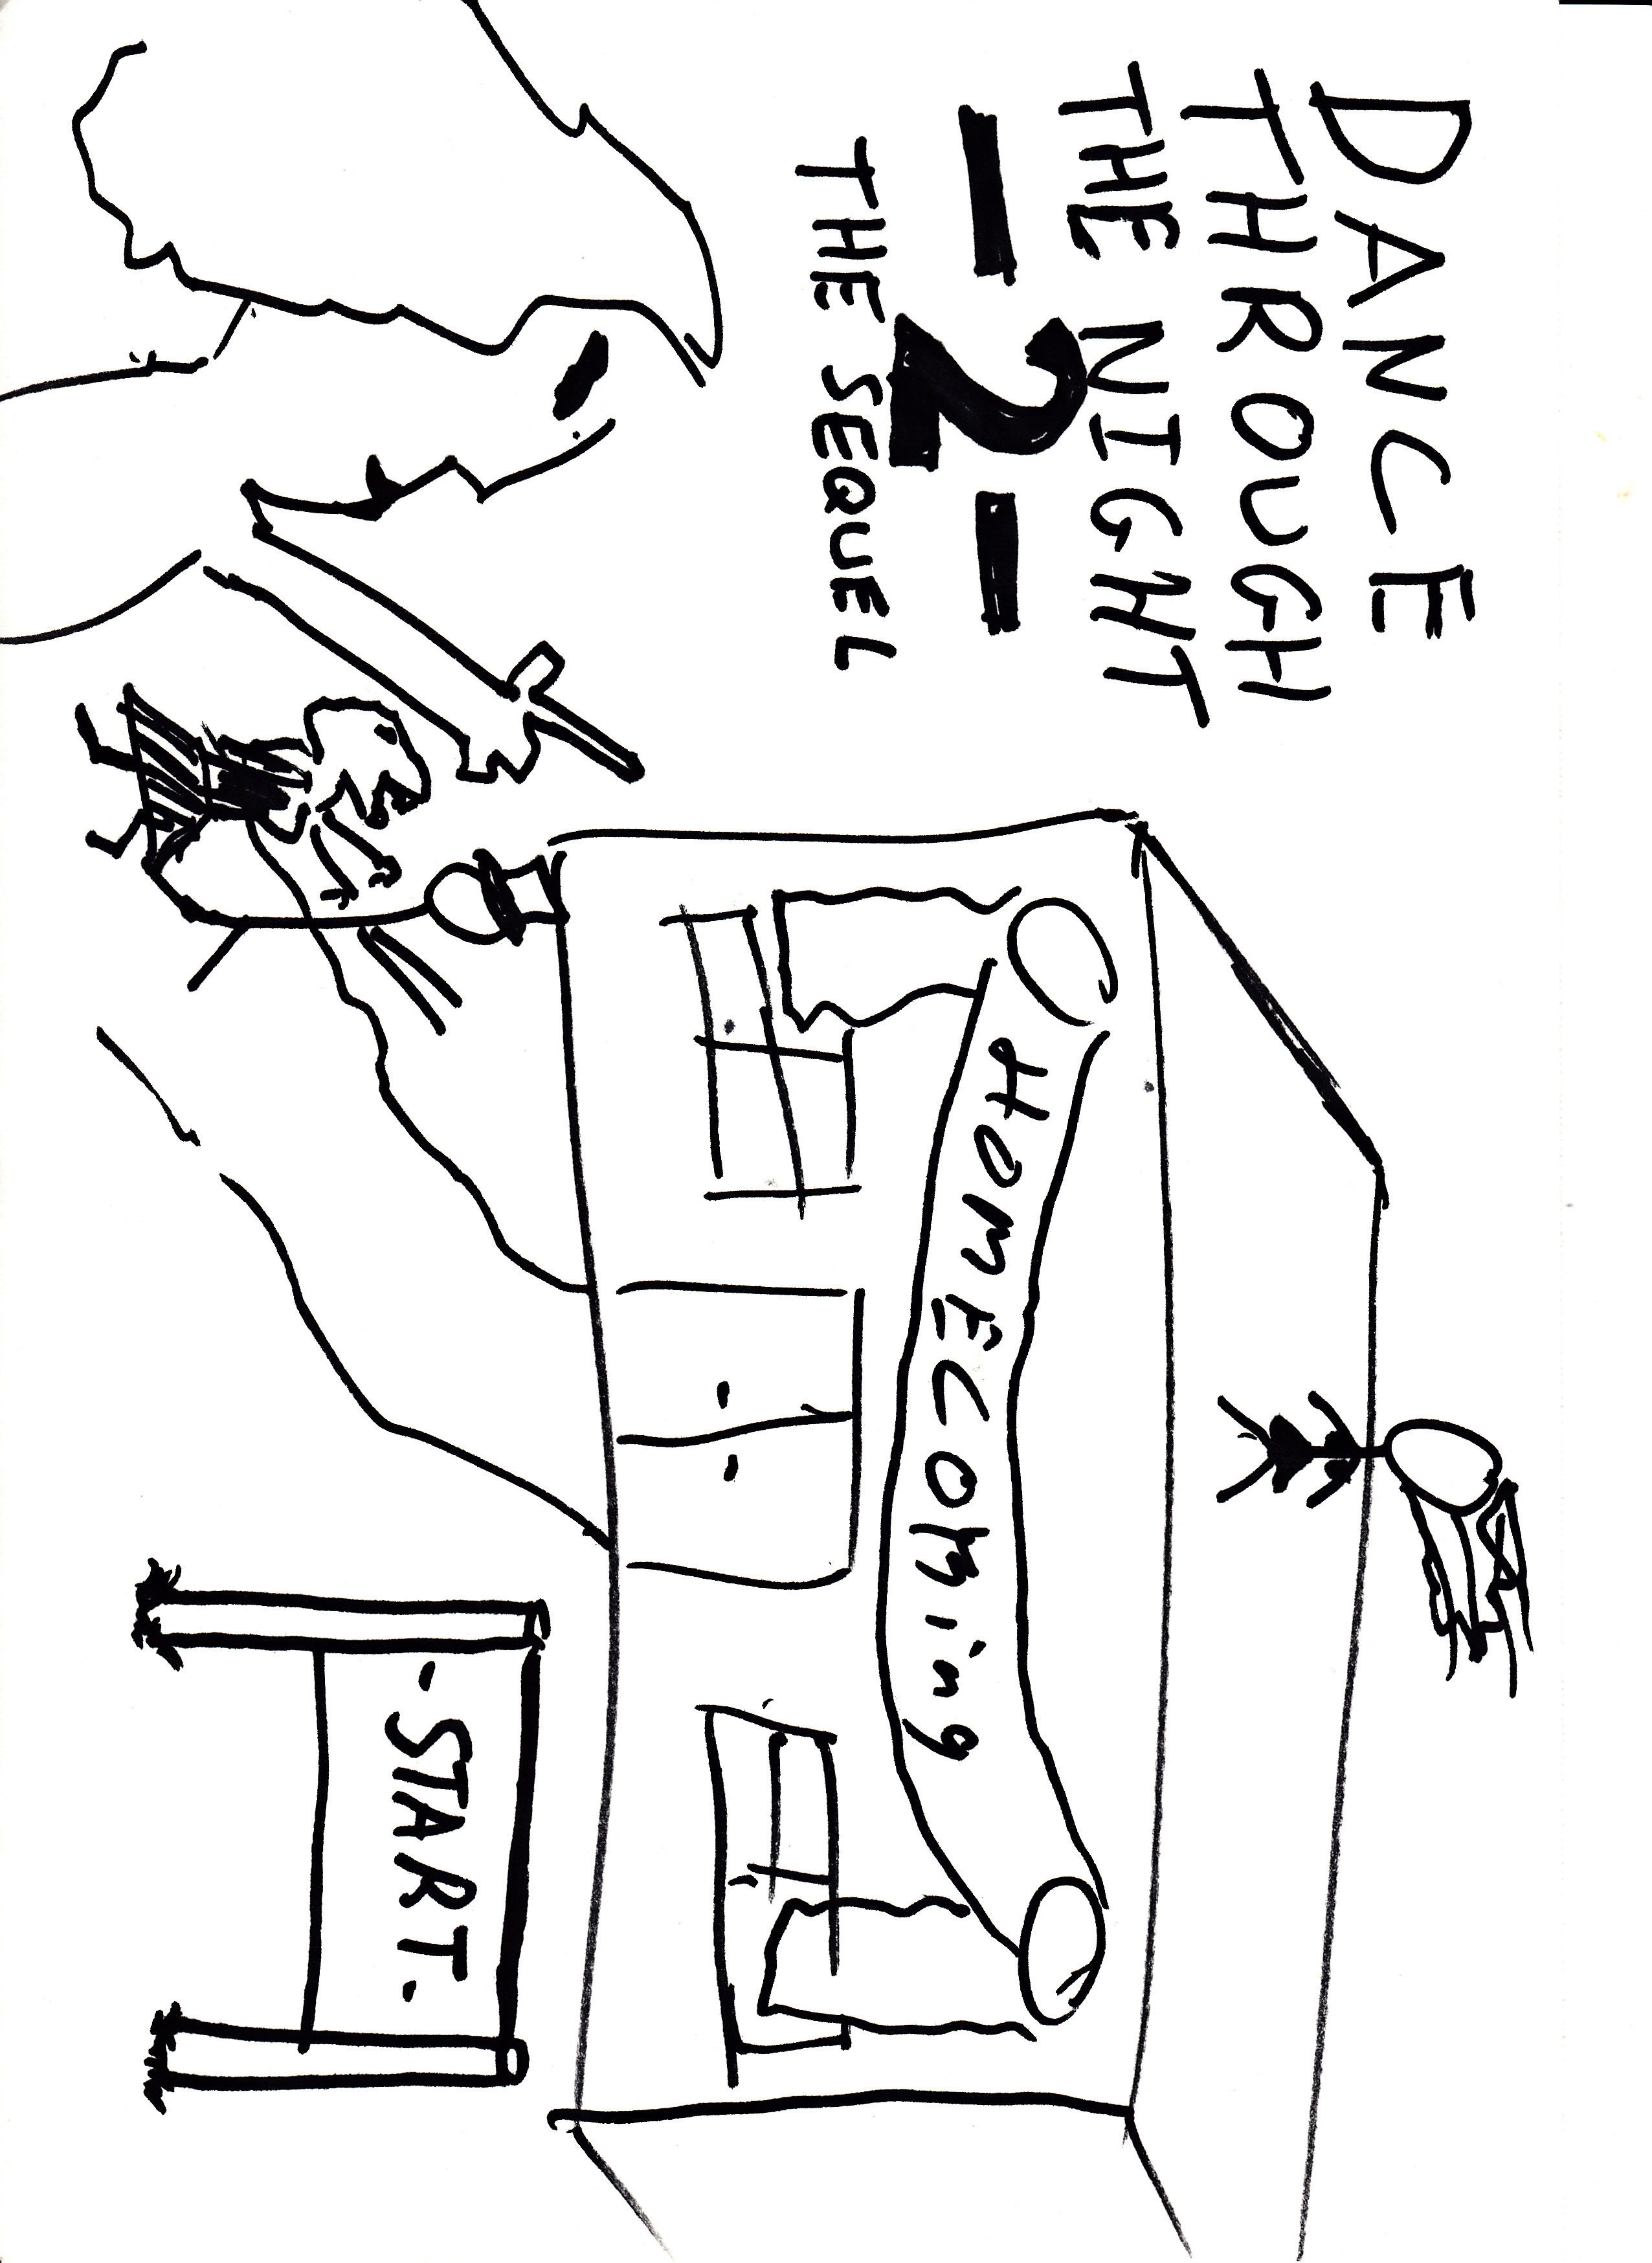 DANCE
THROUGH
THE NIGHT
- 2 -
THE SEQUEL
HOMECOMing
- START.